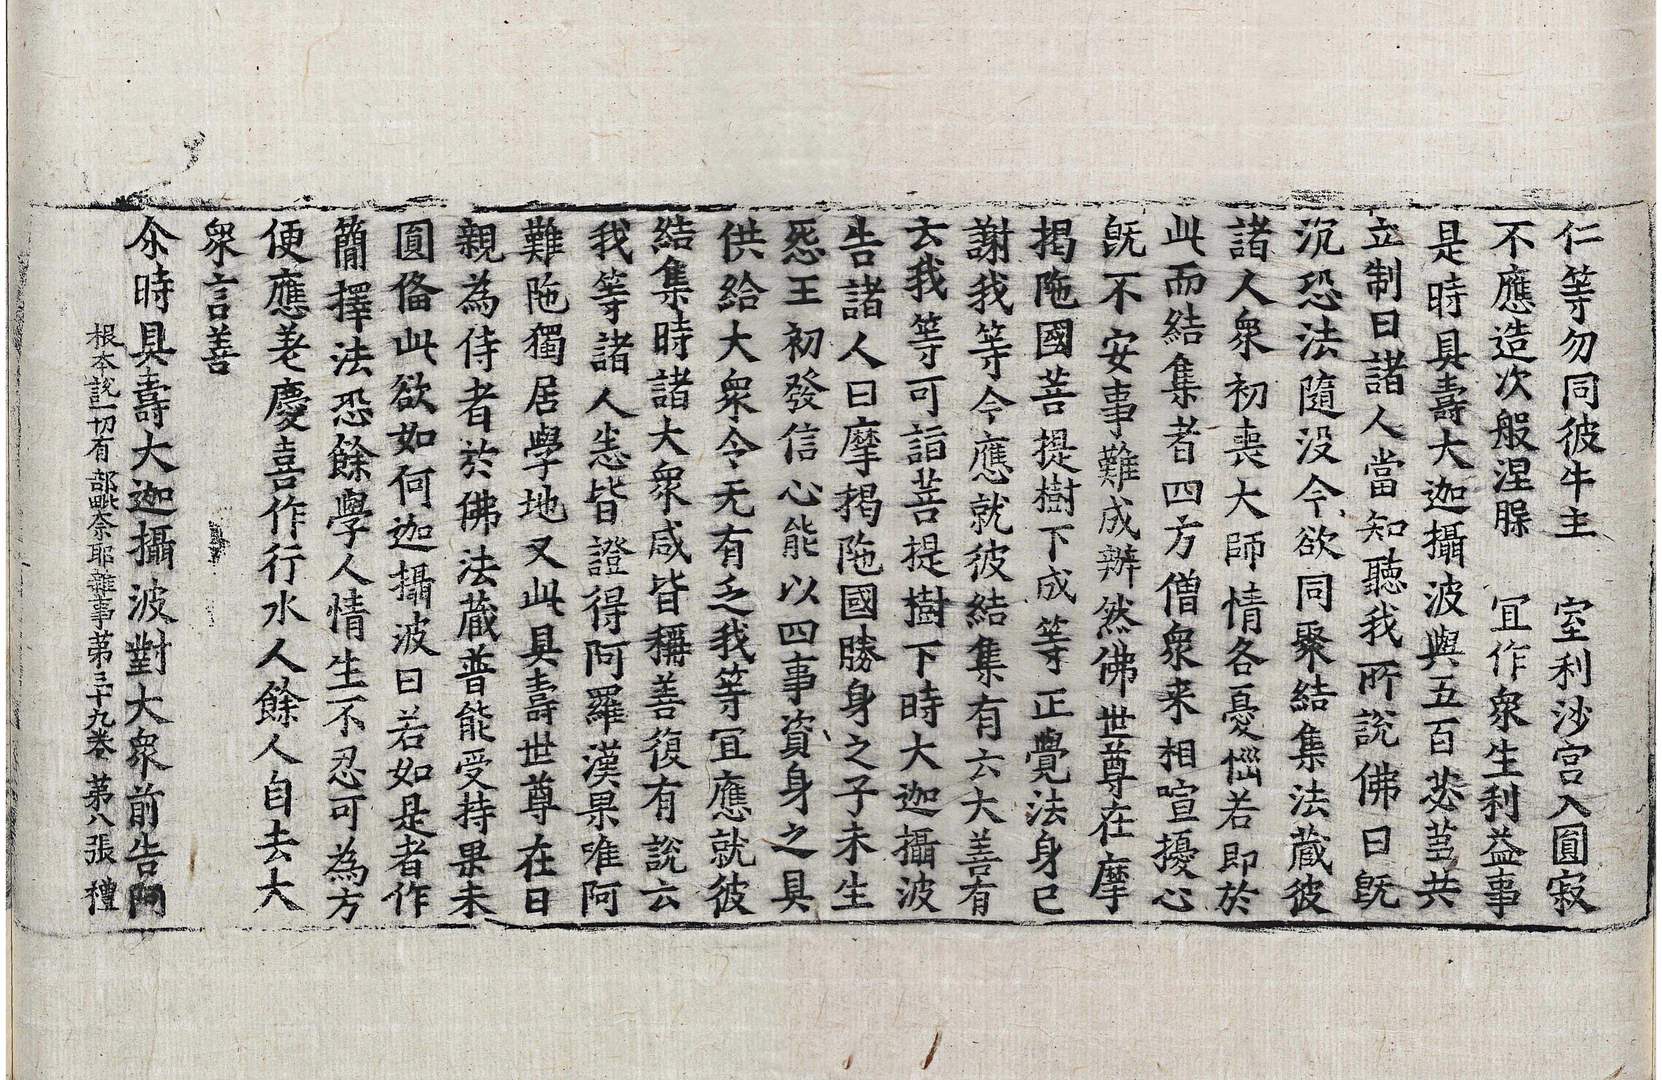 仁等勿同彼牛主　室利沙宫入圓寂
不應造次般涅𦞙　冝作衆生利益事
是時具壽大迦攝波與五百苾芻共
立制曰諸人當知聽我所說佛日旣
沉恐法隨没今欲同聚結集法蔵彼
諸人衆初喪大師情各憂惱若即於
此而結集者四方僧衆来相喧擾心
旣不安事難成辦然佛世尊在摩
揭陁國菩提樹下成等正覺法身已
謝我等今應就彼結集有云大善有
云我等可詣菩提樹下時大迦攝波
告諸人曰摩揭陁國勝身之子未生
怨王初發信心能以四事資身之具
供給大衆今无有乏我等冝應就彼
結集時諸大衆咸皆稱善復有說云
我等諸人悉皆證得阿羅漢果唯阿
難陁獨居學地又此具壽世尊在日
親為侍者於佛法蔵普能受持果未
圓俻此欲如何迦攝波曰若如是者作
簡擇法恐餘學人情生不忍可為方
便應差慶喜作行水人餘人自去大
衆言善
尒時具壽大迦攝波對大衆前告阿
根本說一切有部毗奈耶雜事第三十九卷　第八張　禮